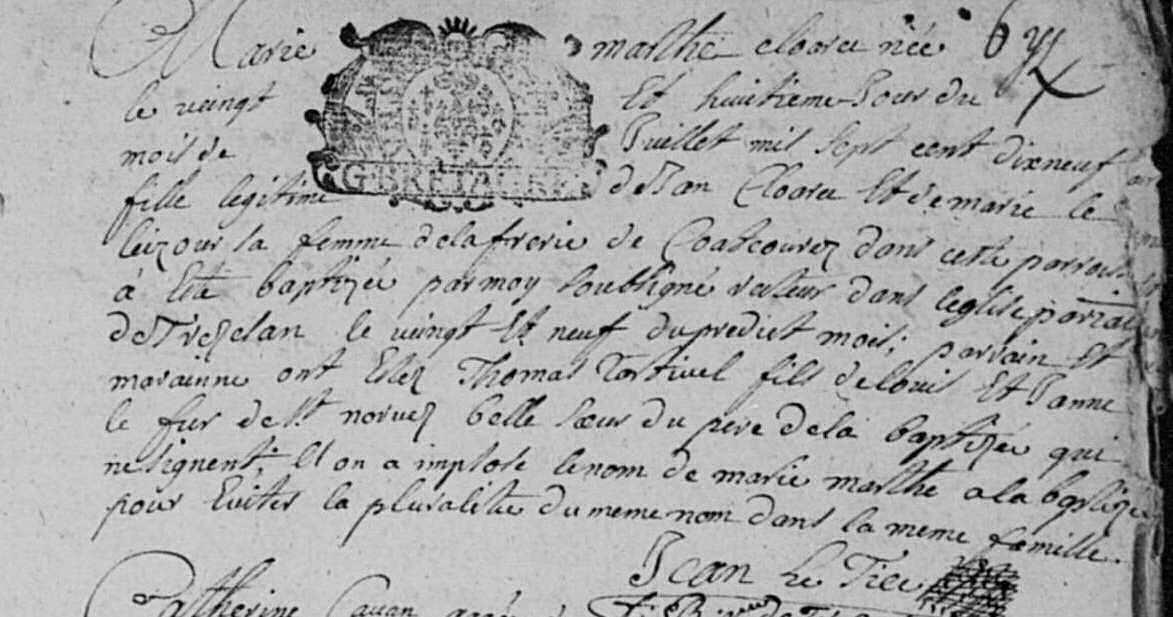 Marie marthe cloarec née
le vingt Et huitieme Jour du
mois de Juillet mil sept cent dixneuf
G. BRETAGNE
fille legitime de Jan Cloarec Et de marie le
leizour sa femme de la frerie de Coatcourez dans cette parroisse
à Esté baptizée par moy soubsigné recteur dans l'eglise parroi
de Trezelan le vingt Et neuf du predict mois; parrain Et
maraienne ont Estez Thomas Tortivel fils de louis Et Janne
le fur de St norvez belle sœur du pere de la baptizée qui
ne signent; Et on a imposé le nom de marie marthe a la baptizée
pour Eviter la pluralite du meme nom dans la meme famille.
Jean le Tiec
Catherine Cauan